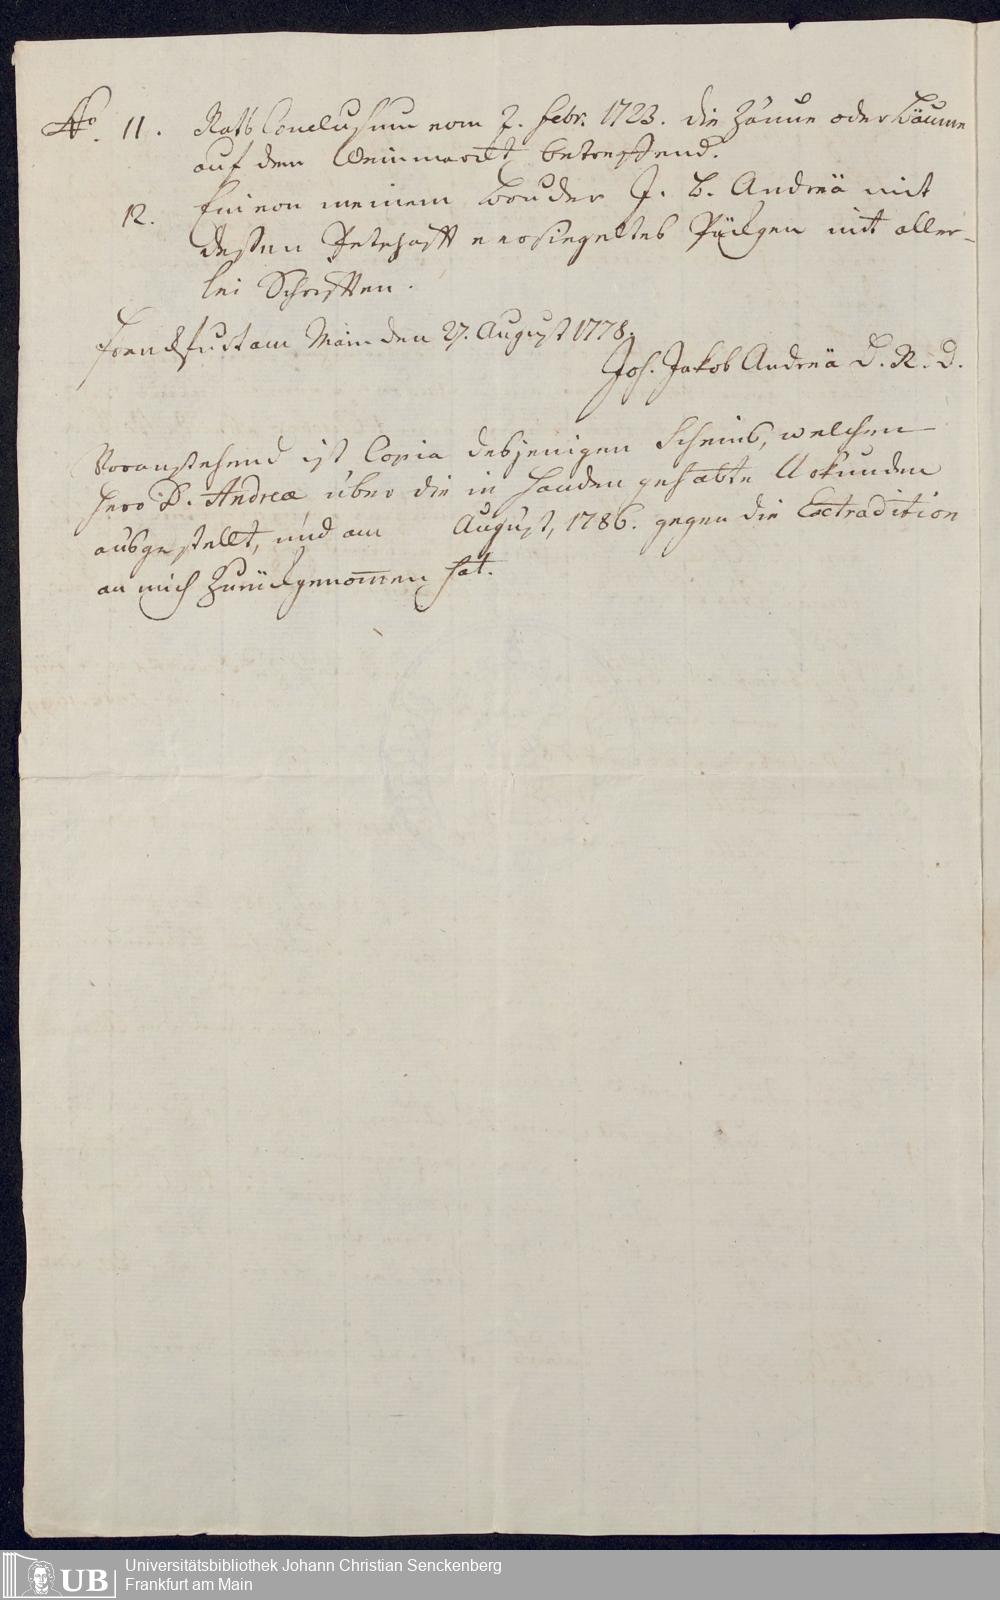 No. 11. Raths Conclusum vom 2. Febr. 1723. die Zäune oder Bäume
auf dem Weinmarckt betreffend.
12. Ein von meinem Bruder J. B. Andreä mit
deßen Petschafft versiegeltes Päckgen mit aller-
lei Schrifften.
Franckfurt am Main den 27. August 1778.
Joh. Jakob Andreä D. R. D.
Voranstehend ist Copia desjenigen Scheins, welchen
Herr D. Andreæ über die in Handen gehabte Urkunden
ausgestellt, und am August, 1786. gegen die Extradition
an mich zurückgenom̅en hat.
UB Universitätsbibliothek Johann Christian Senckenberg
Frankfurt am Main